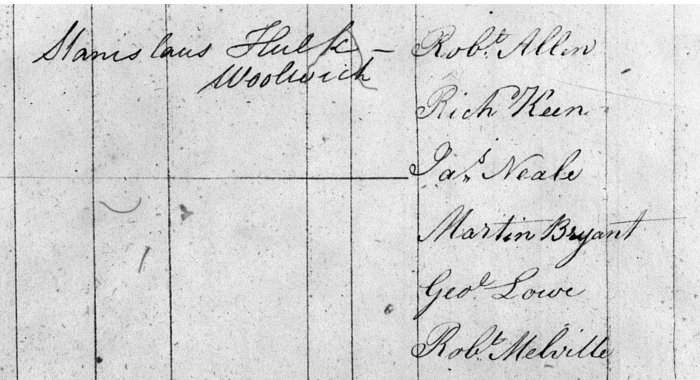 Stanislaus Hulk – Robt Allen
Woolwich
Richd Keen
Jas Neale
Martin Bryant
Geoe Lowe
Robt Melville